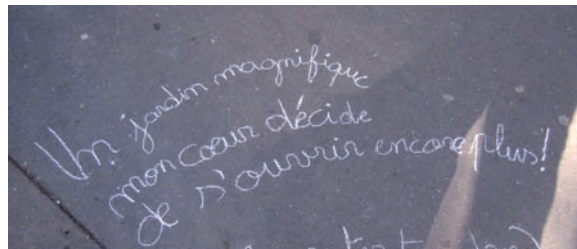 Un jardin magnifique
mon cœur décide
de s'ouvrir encore plus!